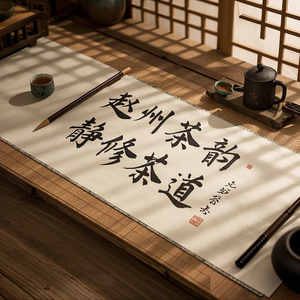 赵州茶韵
静修茶道